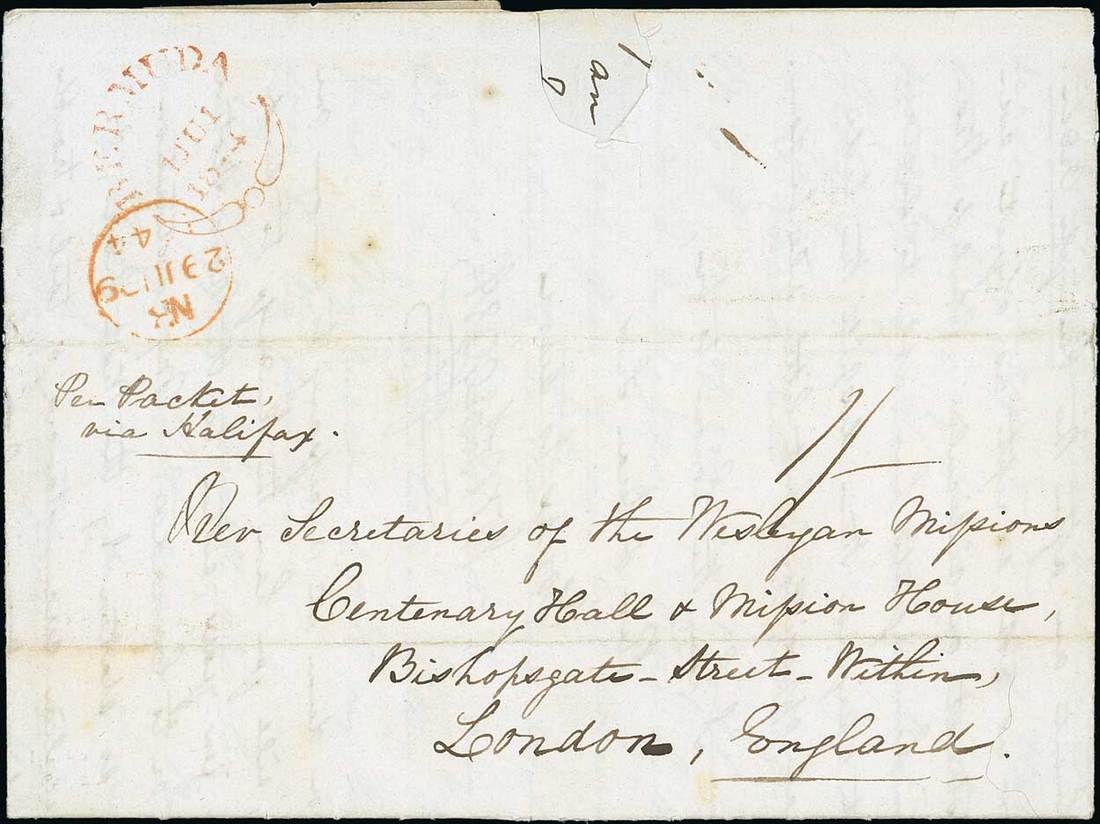 BERMUDA
JUL 1
1844
NR
29 JY 29
44
an
Per Packet,
via Halifax.
1/-
Rev Secretaries of the Wesleyan Missions
Centenary Hall & Mission House,
Bishopsgate - Street - Within,
London, England.